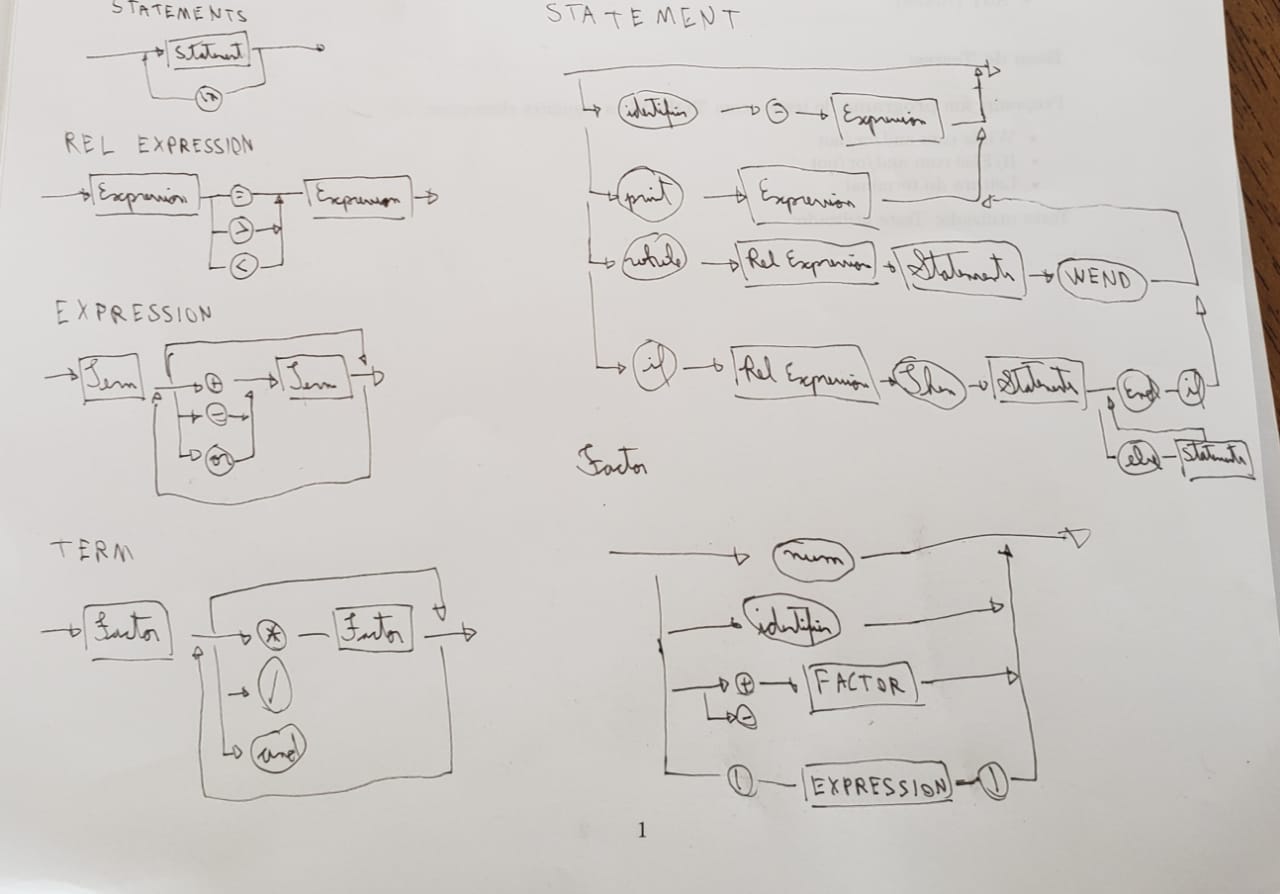 STATEMENTS
Statement
\n
REL EXPRESSION
Expression = Expression
>
<
EXPRESSION
Term + Term
-
or
TERM
Factor * Factor
/
and
STATEMENT
identifier = Expression
print Expression
while Rel Expression Statements WEND
if Rel Expression Then Statements End if
else Statements
Factor
num
identifier
+ FACTOR
-
( EXPRESSION )
1